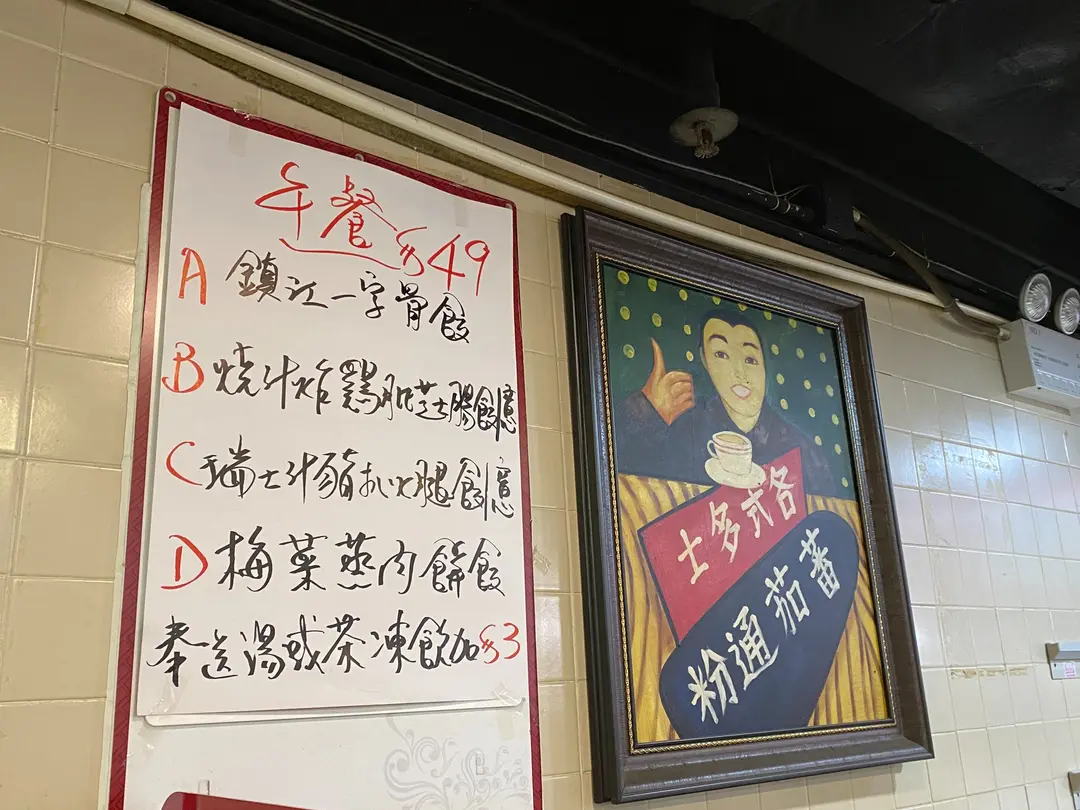 午餐 $49
A 鎮江一字骨飯
B 燒汁炸鷄肶芝士腸飯|意
C 瑞士汁豬扒火腿飯|意
D 梅菜蒸肉餅飯
奉送湯或茶凍飲加$3
各式多士
蕃茄通粉